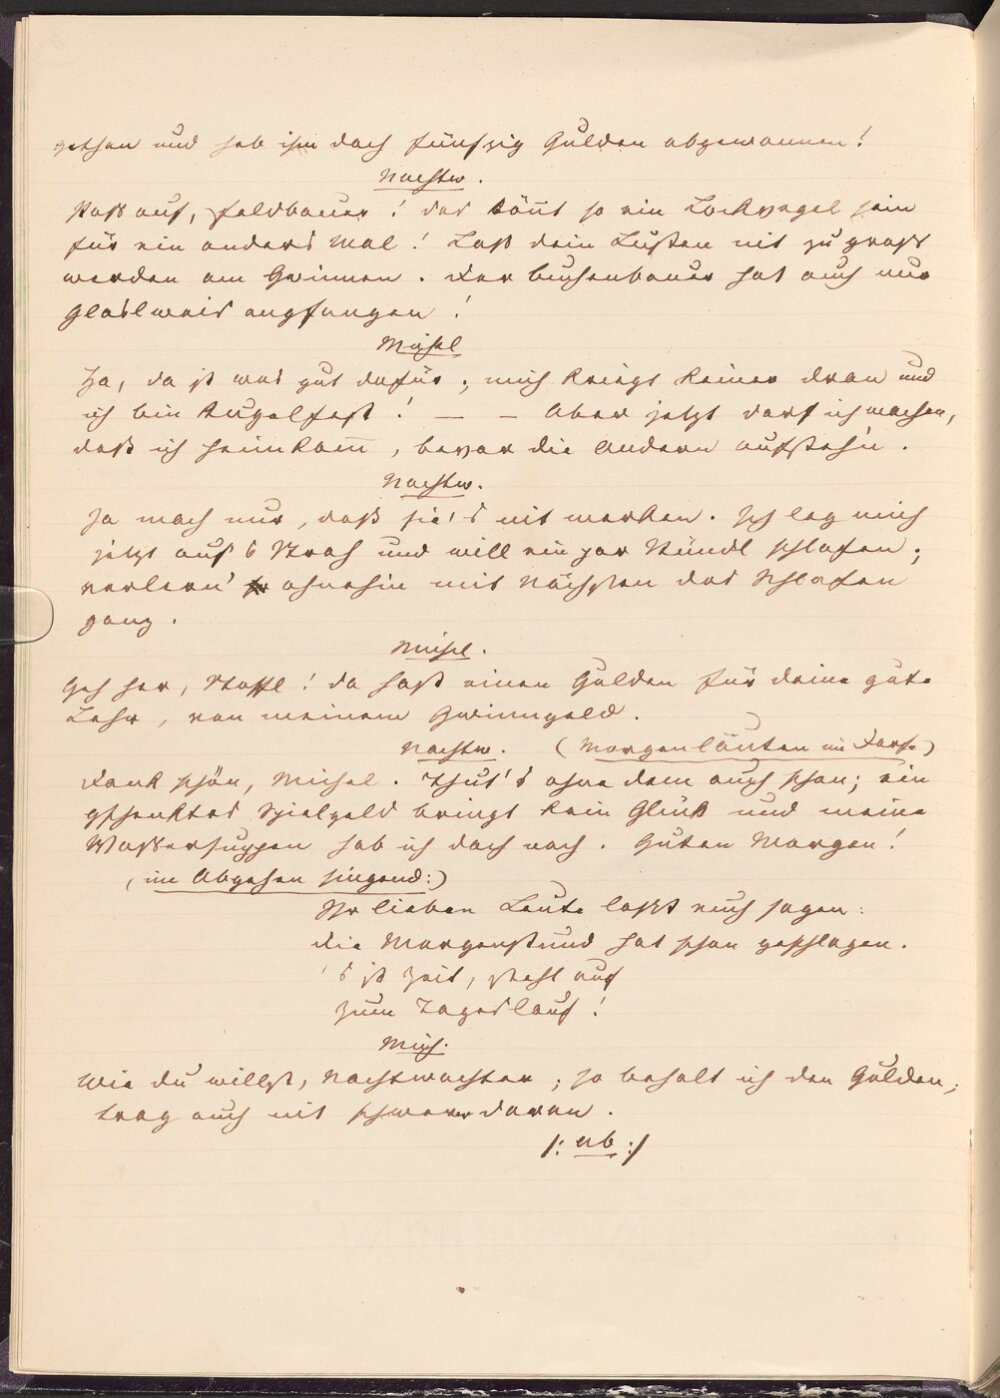 gethan und hab ihm doch fünfzig Gulden abgewonnen!
Nachtw.
Paß auf, Feldbauer! das könnt so ein Lockvogel sein
für ein anders Mal! Laß dein Lusten nit zu groß
werden am Gwinnen. Der Buchenbauer hat auch nur
Glaslweis angfangen!
Michel
Ja, da ist was gut dafür; mich kriegt keiner dran und
ich bin kugelfest! — — Aber jetzt darf ich machen,
daß ich heimkom̅, bevor die Andern aufsteh'n.
Nachtw.
Ja mach nur, daß sie's nit merken. Ich leg mich
jetzt auf's Stroh und will ein par Stündl schlafen;
verlern' ohnehin mit Nächsten das Schlafen
ganz.
Michel.
Geh her, Stoffl! da hast einen Gulden für deine gute
Lehr, von meinem Gwinngeld.
Nachtw. (Morgenläuten im Dorfe)
Dank schön, Michel. Thut's ohne dem auch schon; ein
gschenktes Spielgeld bringt kein Glück und meine
Wassersuppen hab ich doch noch. Guten Morgen!
(im Abgehen singend:)
Ihr lieben Leute laßt euch sagen:
die Morgenstund hat schon geschlagen.
's ist Zeit, steht auf
zum Tageslauf!
Mich.
Wie du willst, Nachtwachter; so behalt ich den Gulden;
trag auch nit schwer daran.
/: ab :/